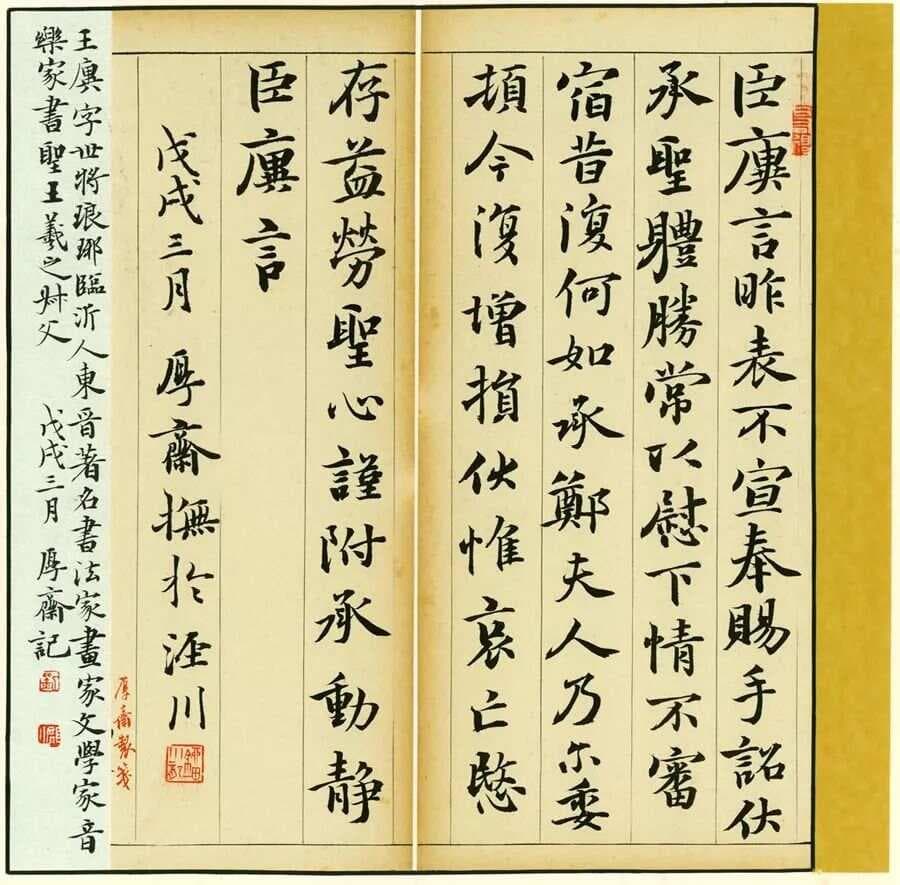 臣廙言昨表不宣奉賜手詔伏
承聖體勝常以慰下情不審
宿昔復何如承鄭夫人乃尒委
頓今復增損伏惟哀亡愍
存益勞聖心謹附承動靜
臣廙言
戊戌三月 厚齋撫於涇川
厚齋製箋
王廙字世將琅琊臨沂人東晉著名書法家畫家文學家音
樂家書聖王羲之叔父 戊戌三月 厚齋記